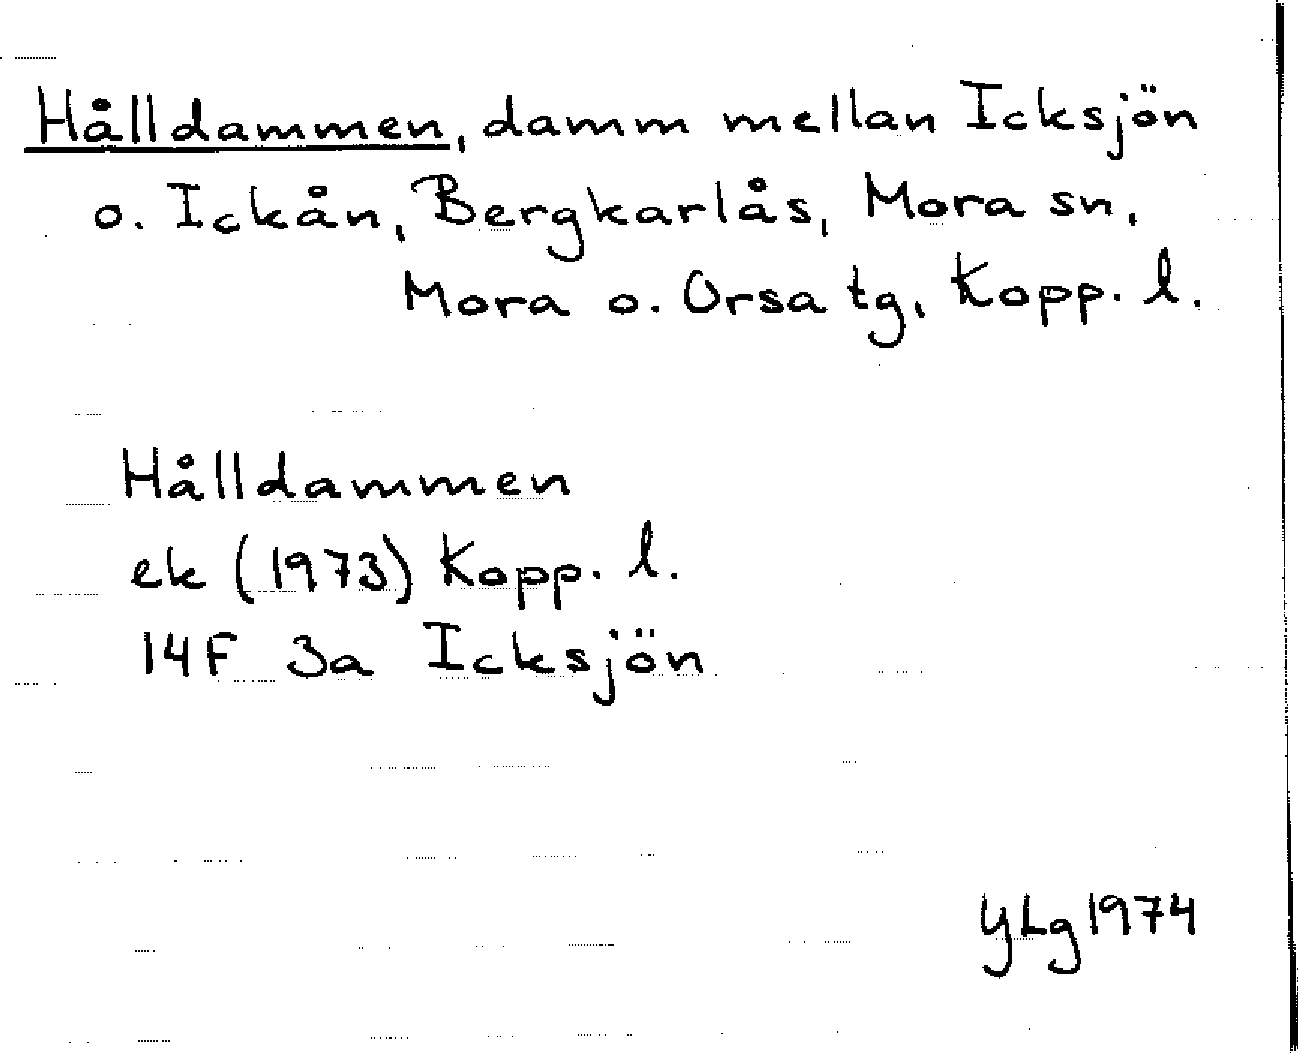 Hålldammen, damm mellan Icksjön
o. Ickån, Bergkarlås, Mora sn,
Mora o. Orsa tg, Kopp. l.
Hålldammen
ek (1973) Kopp. l.
14F 3a Icksjön
YLg 1974